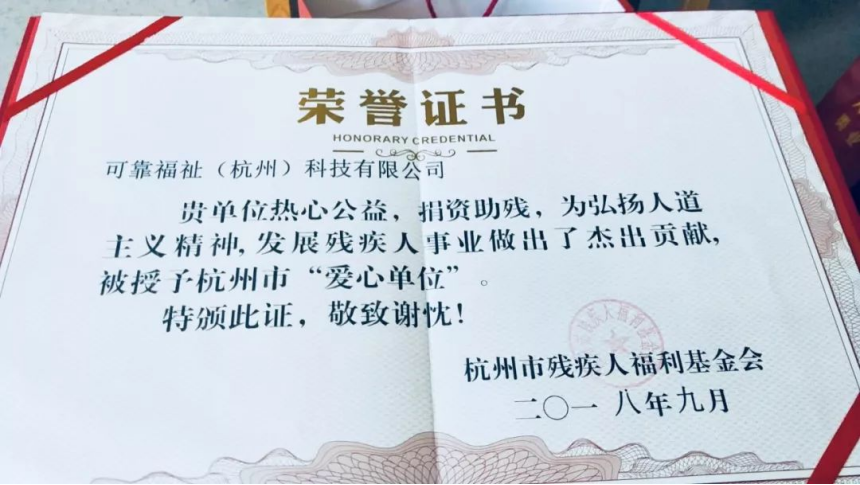 荣誉证书
HONORARY CREDENTIAL
可靠福祉（杭州）科技有限公司
贵单位热心公益，捐资助残，为弘扬人道
主义精神，发展残疾人事业做出了杰出贡献，
被授予杭州市“爱心单位”。
特颁此证，敬致谢忱！
杭州市残疾人福利基金会
二〇一八年九月